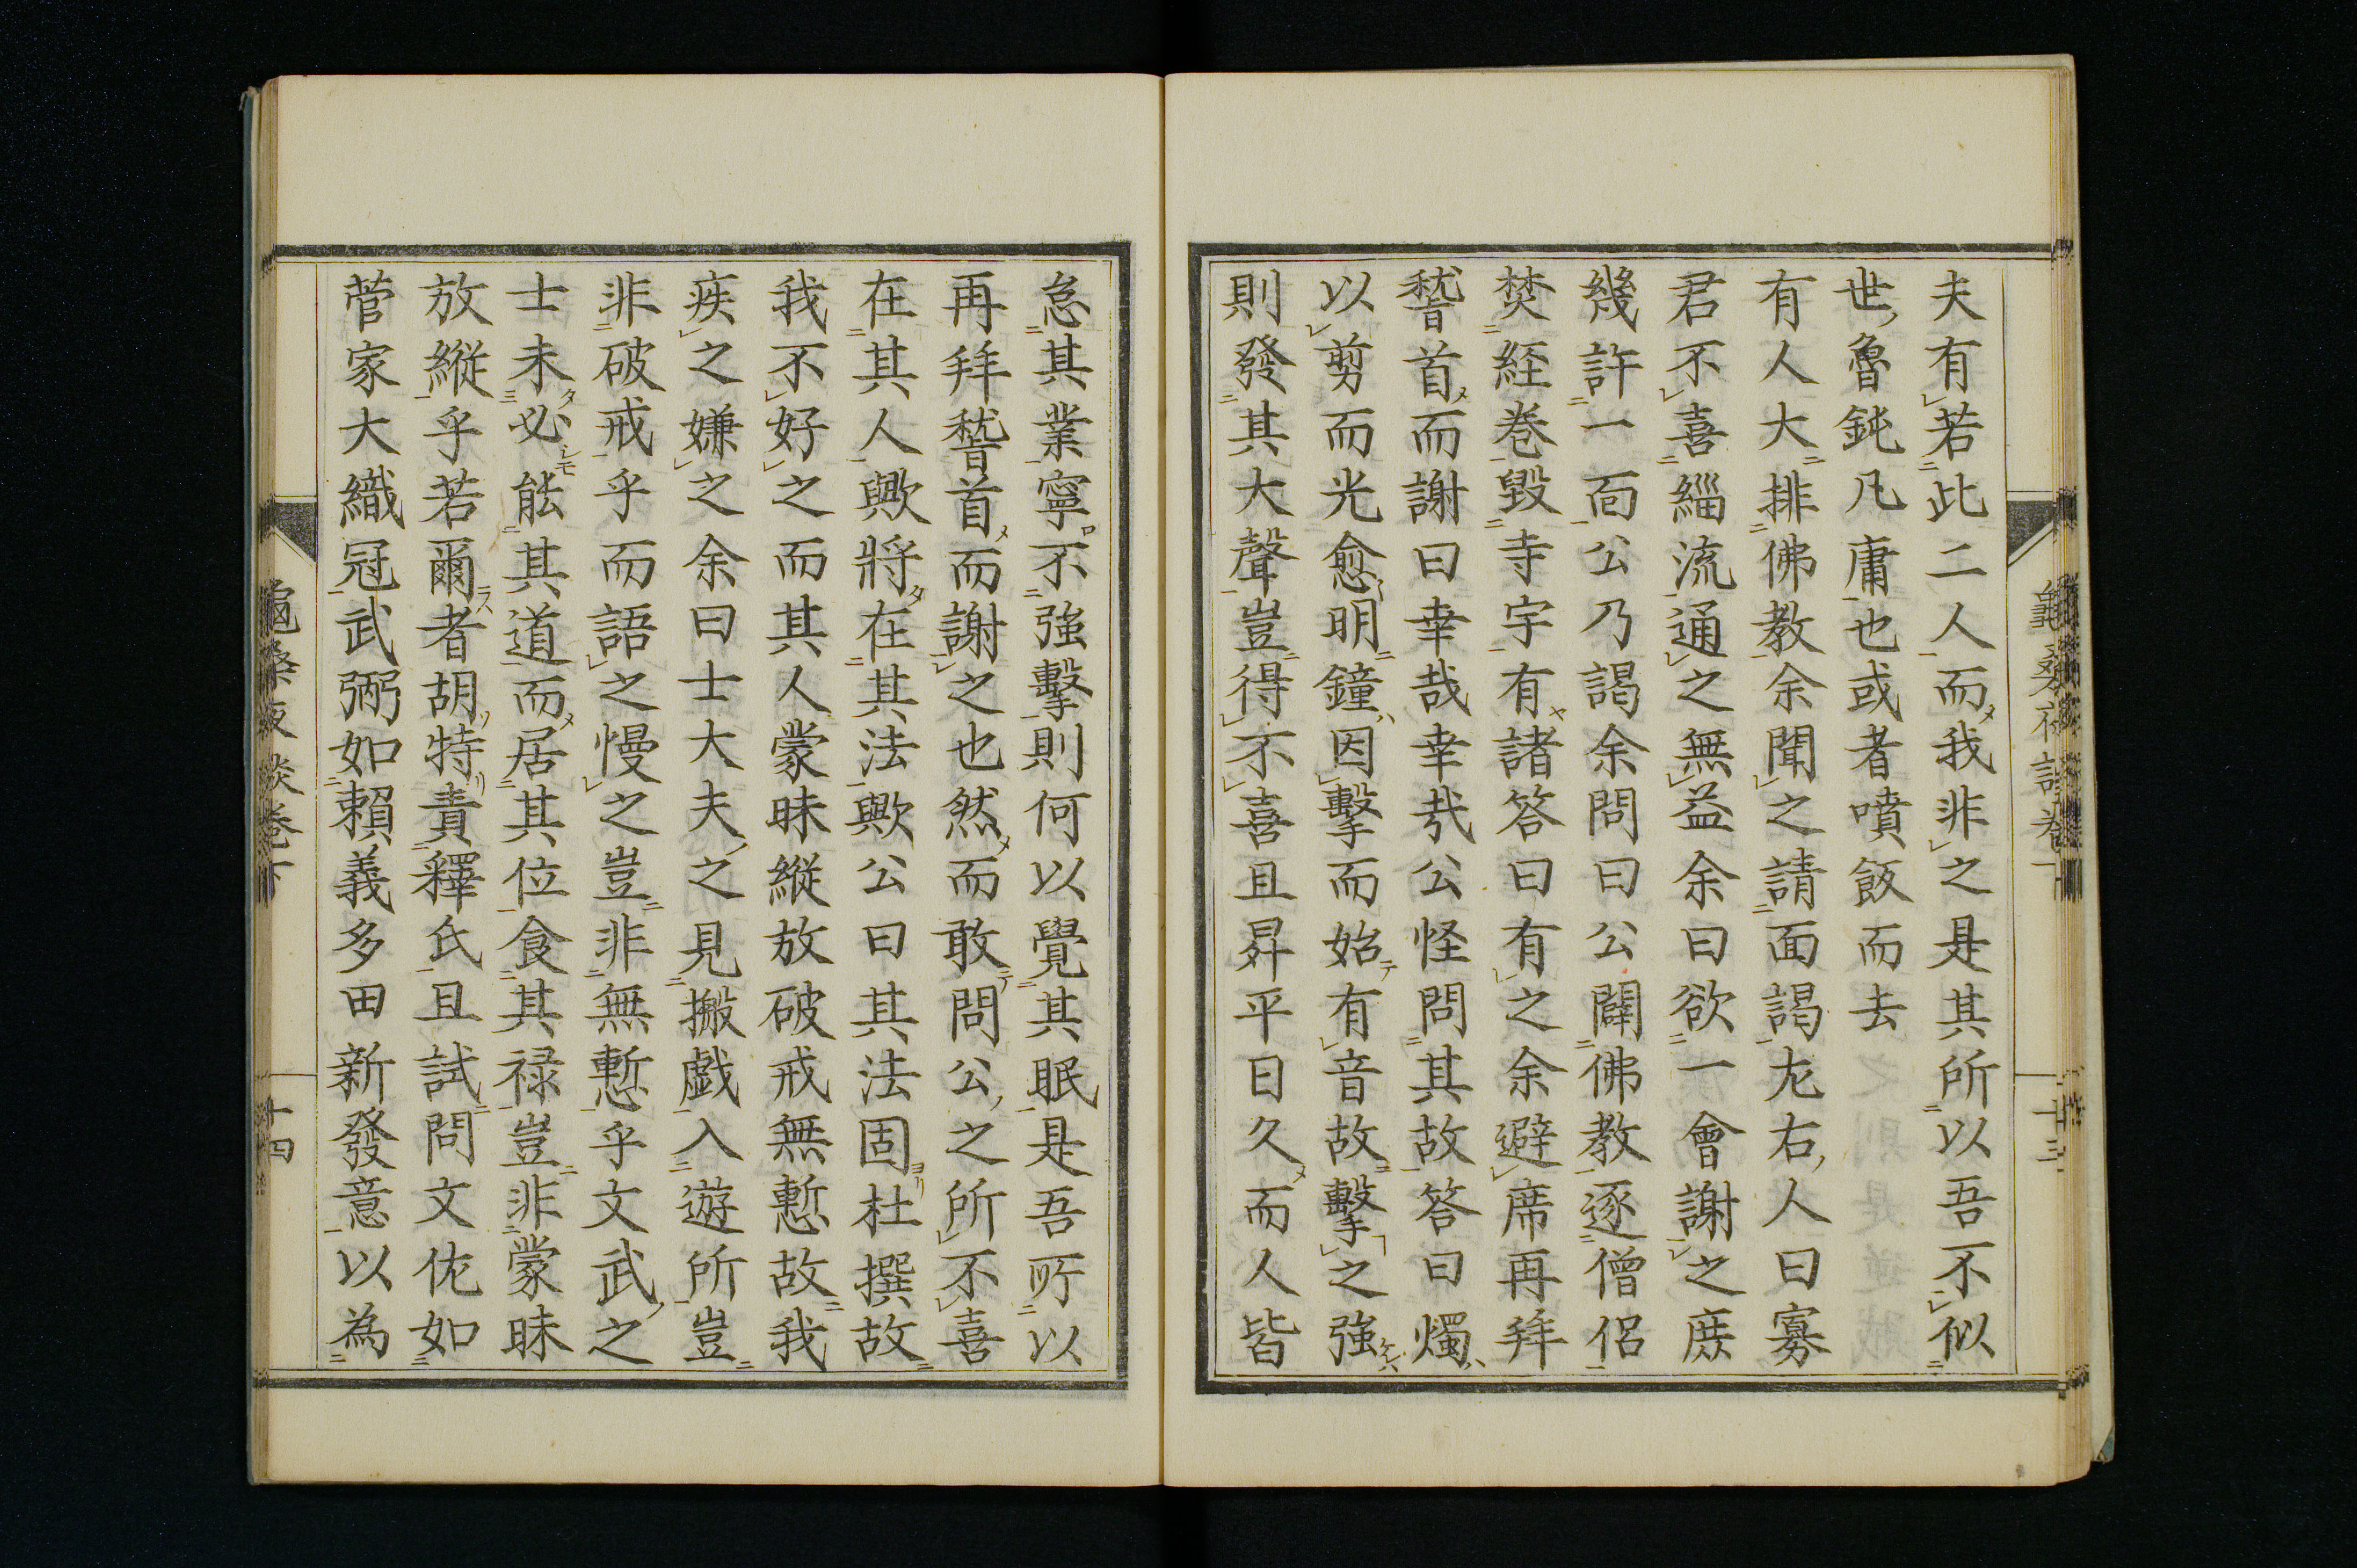 夫有若此二人而我非之是其所以吾不似
世魯鈍凡庸也或者噴飯而去
有人大排佛教余聞之請面謁尨右人曰寡
君不喜緇流通之無益余曰欲一會謝之庶
幾許一面公乃謁余問曰公闢佛教逐僧侶
焚経巻毀寺宇有諸答曰有之余避席再拜
稽首而謝曰幸哉幸哉公怪問其故答曰燭
以剪而光愈明鐘因擊而始有音故擊之強
則發其大聲豈得不喜且昇平日久而人皆
怠其業寧不強擊則何以覺其眠是吾所以
再拜稽首而謝之也然而敢問公之所不喜
在其人歟將在其法歟公曰其法固杜撰故
我不好之而其人蒙昧縦放破戒無慙故我
疾之嫌之余曰士大夫之見搬戯入遊所豈
非破戒乎而語之慢之豈非無慙乎文武之
士未必能其道而居其位食其禄豈非蒙昧
放縦乎若爾者胡特責釋氏且試問文侂如
菅家大織冠武弼如賴義多田新發意以為
龜桑夜談巻下
十四